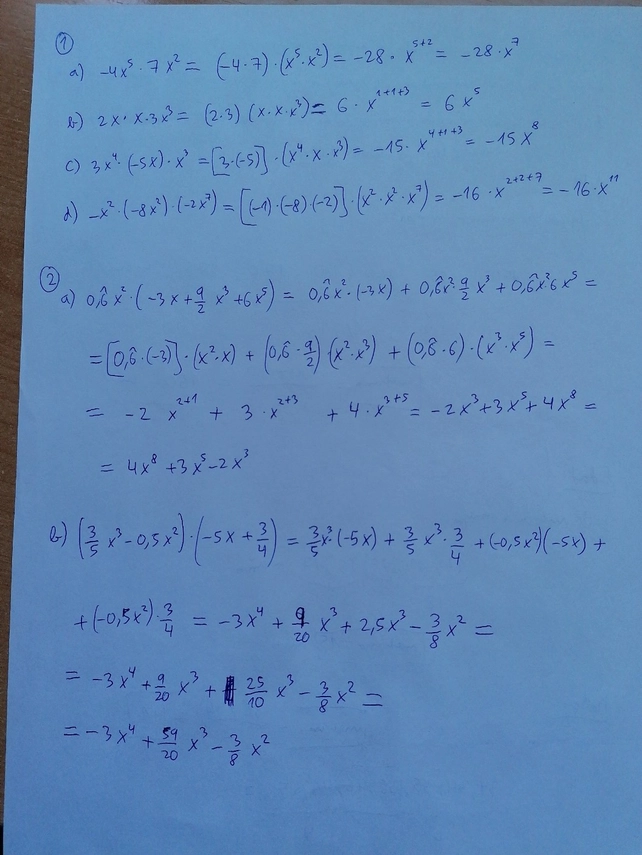 ①
a) -4x⁵ · 7x² = (-4·7)·(x⁵·x²) = -28 · x⁵⁺² = -28·x⁷
b) 2x · x · 3x³ = (2·3) (x·x·x³) = 6 · x¹⁺¹⁺³ = 6x⁵
c) 3x⁴·(-5x)·x³ = [3·(-5)] · (x⁴·x·x³) = -15 · x⁴⁺¹⁺³ = -15x⁸
d) -x²·(-8x²)·(-2x⁷) = [(-1)·(-8)·(-2)]·(x²·x²·x⁷) = -16 · x²⁺²⁺⁷ = -16·x¹¹
②
a) 0,6̂x²·(-3x + 9/2 x³ + 6x⁵) = 0,6̂x²·(-3x) + 0,6̂x²·9/2 x³ + 0,6̂x²6x⁵ =
= [0,6̂·(-3)]·(x²·x) + (0,6̂·9/2)·(x²·x³) + (0,6̂·6)·(x³·x⁵) =
= -2 x²⁺¹ + 3·x²⁺³ + 4·x³⁺⁵ = -2x³ + 3x⁵ + 4x⁸ =
= 4x⁸ + 3x⁵ - 2x³
b) (3/5 x³ - 0,5x²)·(-5x + 3/4) = 3/5 x³·(-5x) + 3/5 x³·3/4 + (-0,5x²)(-5x) +
+ (-0,5x²)·3/4 = -3x⁴ + 9/20 x³ + 2,5x³ - 3/8 x² =
= -3x⁴ + 9/20 x³ + 25/10 x³ - 3/8 x² =
= -3x⁴ + 59/20 x³ - 3/8 x²